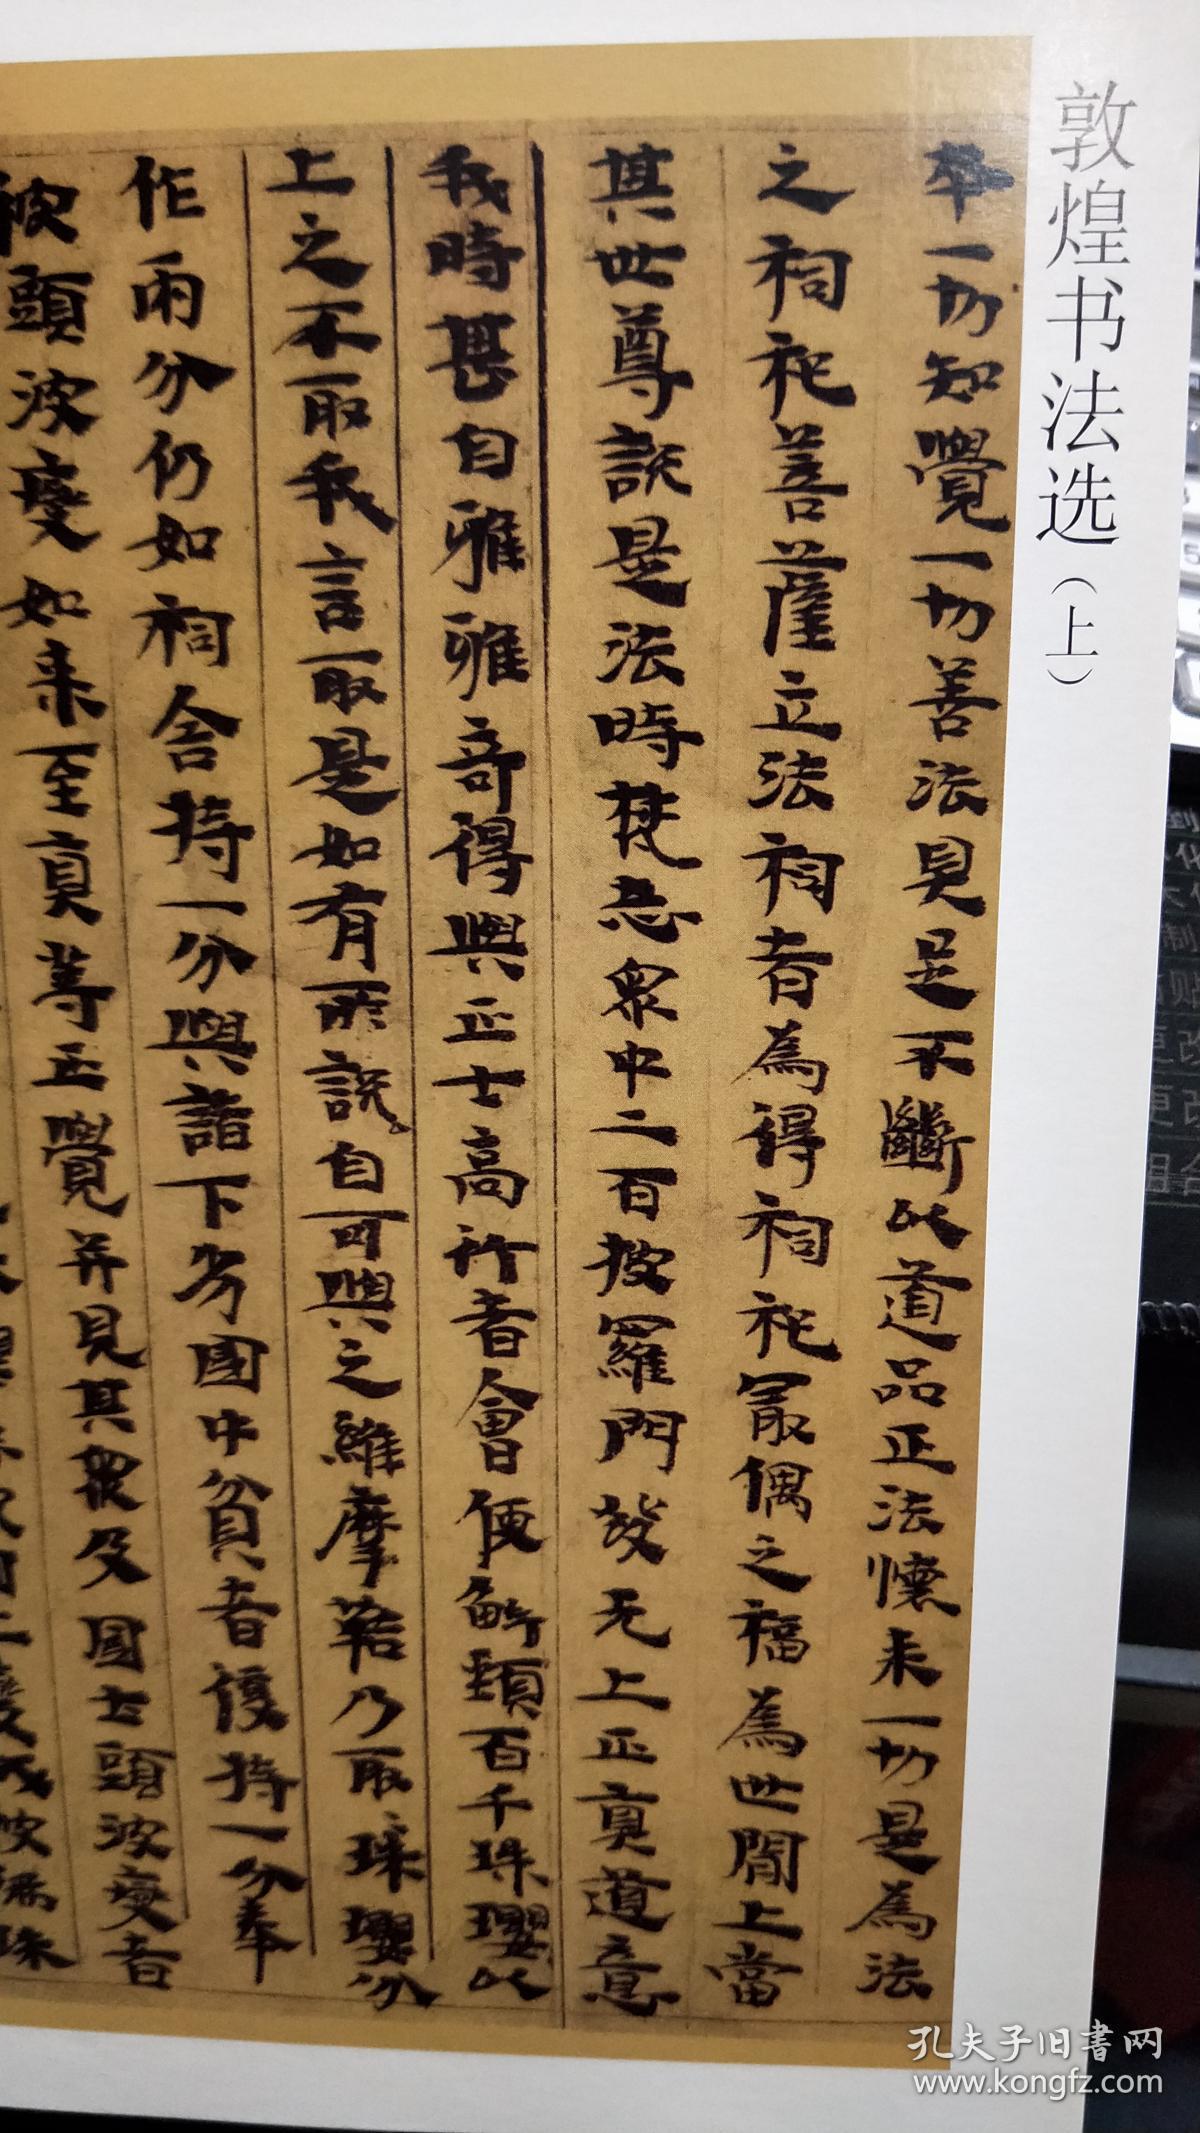 敦煌书法选（上）
卒一切知覺一切善法具足不斷此道品正法懷来一切是為法
之祠祀菩薩立法祠者為得祠祀最偶之福為世間上當
其世尊說是法時梵志眾中二百披羅門發无上正真道意
我時甚自雅雅奇得與正士高行者會便解頸百千珠瓔以
上之不取我言取是如有所說自可與之維摩詰乃取珠瓔分
作兩分仍如祠舍持一分與諸下劣國中貧者復持一分奉
彼頭波變如来至真等正覺并見其眾及國土頭波變者
孔夫子旧書网
www.kongfz.com